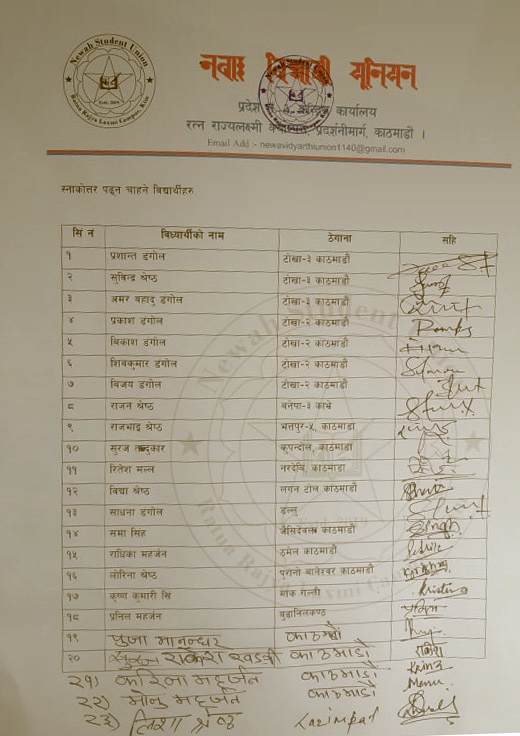 Newah Student Union
Estd. 2019
Ratna Rajya Laxmi Campus, Ktm
नवाः विद्यार्थी युनियन
प्रदेश कार्यालय
रत्न राज्यलक्ष्मी क्याम्पस, प्रदर्शनीमार्ग, काठमाडौं ।
Email Add :- newavidyarthiunion1140@gmail.com
स्नाकोत्तर पढ्न चाहने विद्यार्थीहरु
सि न विध्यार्थीको नाम ठेगाना सहि
१ प्रशान्त डंगोल टोखा-३ काठमाडौ
२ सुविन्द्र श्रेष्ठ टोखा-३ काठमाडौ
३ अमर बहादु डंगोल टोखा-३ काठमाडौ
४ प्रकाश डंगोल टोखा-२ काठमाडौ
५ बिकाश डंगोल टोखा-२ काठमाडौ
६ शिवकुमार डंगोल टोखा-२ काठमाडौ
७ विजय डंगोल टोखा-२ काठमाडौ
८ राजन श्रेष्ठ बनेपा-३ काभ्रे
९ राजभाई श्रेष्ठ भत्तपुर-५, काठमाडौ
१० सुरज कुपन्दोल, काठमाडौ
११ रितेश मल्ल नरदेवि, काठमाडौ
१२ विद्या श्रेष्ठ लगन टोल काठमाडौ
१३ साधना डंगोल डल्लु
१४ समा सिंह जैसिदेवल काठमाडौ Singh
१५ राधिका महर्जन ठमेल काठमाडौ
१६ लोरिना श्रेष्ठ पुरानो बानेश्वर काठमाडौ
१७ कृष्ण कुमारी सि मांक गल्ली
१८ प्रनिल महर्जन बुढानिलकण्ठ
१९ पुजा मानन्धर काठमाडौं
२० राकेश काठमाडौं
२१) करिना महर्जन काठमाडौं
२२) मोनु महर्जन काठमाडौं Menu
२३) लिशा श्रेष्ठ Lazimpat